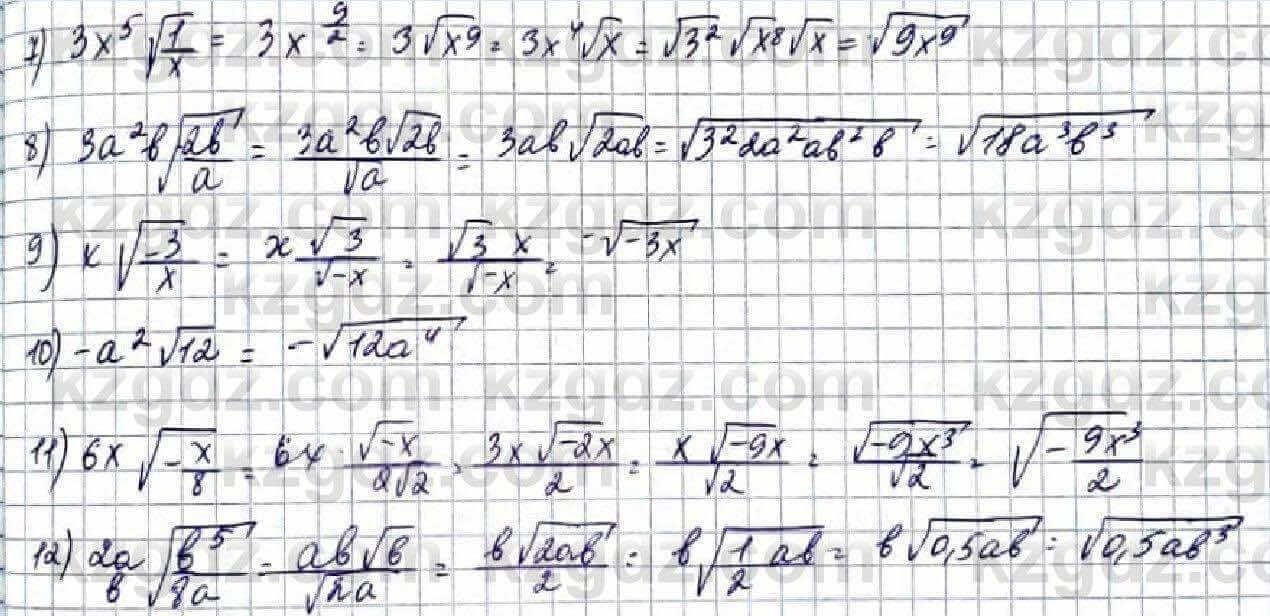 7) 3x⁵ √(1/x) = 3x^(9/2) = 3√x⁹ = 3x⁴√x = √3² √x⁸ √x = √9x⁹
8) 3a²b√(2b/a) = 3a²b√2b/√a = 3ab√2ab = √3²2a²ab²b = √18a³b³
9) x√(-3/x) = x √3/√-x = √3 x/√-x = -√-3x
10) -a²√12 = -√12a⁴
11) 6x√(-x/8) = 6x · √-x/2√2 = 3x√-2x/2 = x√-9x/√2 = √-9x³/√2 = √(-9x³/2)
12) 2a/b √(b⁵/8a) = ab√b/√2a = b√2ab/2 = b√(1/2 ab) = b√0,5ab = √0,5ab³
kzgdz.com